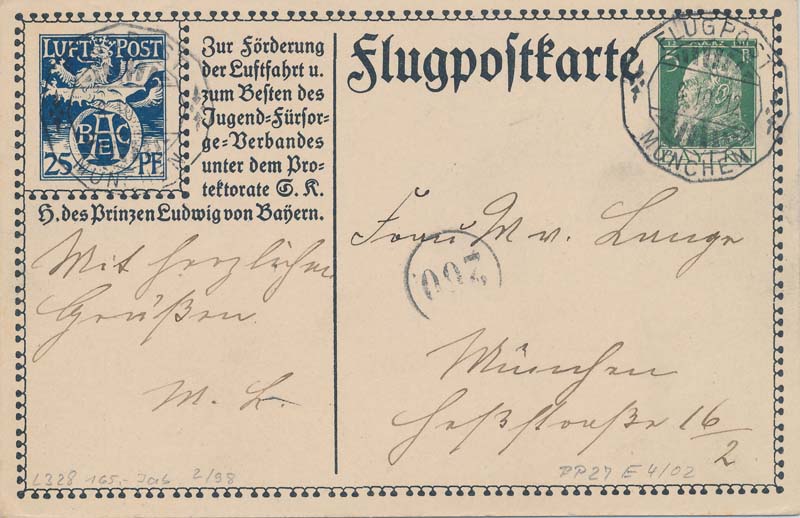 LUFT POST
VB AEC
25 PF
Zur Förderung
der Luftfahrt u.
zum Besten des
Jugend-Fürsor-
ge-Verbandes
unter dem Pro-
tektorate S. K.
H. des Prinzen Ludwig von Bayern.
Flugpostkarte
5
FLUGPOST
MÜNCHEN
Mit herzlichen
Grüßen.
M. L.
Frau M v. Lange
200
München
Heßstraße 16/2
L328 165.- 2/98
PP27 E4/02